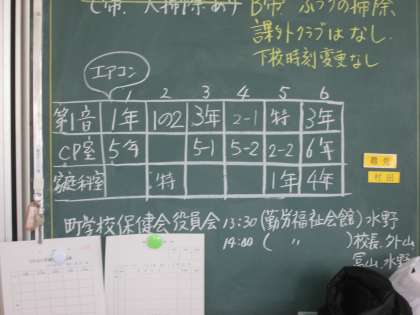 C帯. 大掃除あり B帯 ふつうの掃除
課外クラブはなし.
下校時刻変更なし
エアコン
1 2 3 4 5 6
第1音 1年 1の2 3年 2-1 特 3年
CP室 5年 5-1 5-2 2-2 6年
家庭科室 特 1年 4年
町学校保健会役員会 13:30 (勤労福祉会館) 水野
14:00 ( 〃 ) 校長、外山
冨山、水野
村田